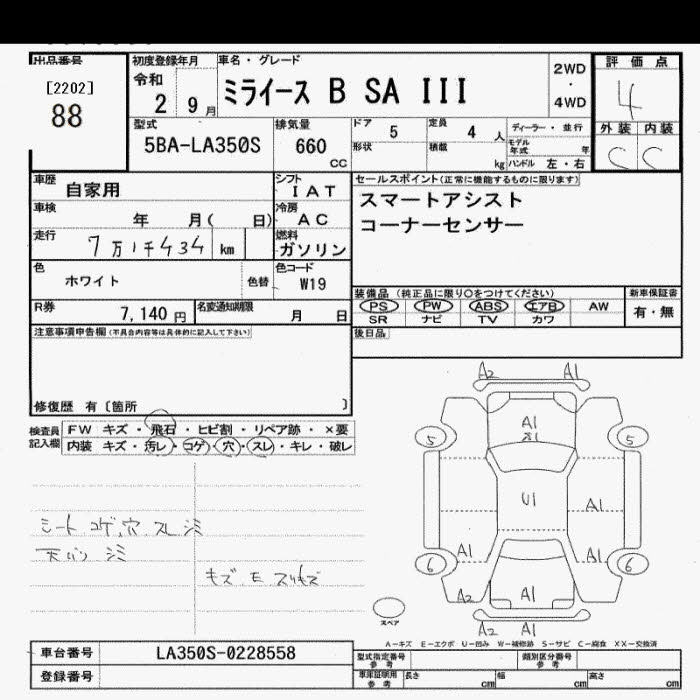 出品番号
[2202]
88
初度登録年月
令和
2 9 月
車名・グレード
ミライース B SA III
2WD
・
4WD
評価点
4
外装 内装
C C
型式
5BA-LA350S
排気量
660
CC
ドア 5
形状
定員 4 人
積載 kg
ディーラー・並行
モデル年式 年
ハンドル 左・右
車歴 自家用
シフト IAT
車検 年 月( 日)
冷房 AC
走行 7万1千434 km
燃料 ガソリン
色 ホワイト
色替
色コード W19
R券 7,140 円
名変通知期限 月 日
セールスポイント(正常に機能するものに限ります)
スマートアシスト
コーナーセンサー
装備品 (純正品に限り○をつけてください)
PS PW ABS エアB AW
SR ナビ TV カワ
新車保証書
有・無
後日品
注意事項申告欄(不具合内容等は具体的に記入して下さい)
修復歴 有〔箇所 〕
検査員記入欄
FW キズ・飛石・ヒビ割・リペア跡・×要
内装 キズ・汚レ・コゲ・穴・スレ・キレ・破レ
シート コゲ、穴 スレ シミ
天バリ シミ
キズ E スリキズ
A2 A1
A1
5 5
U1 A1
A1 A1
6 6
A2 A1 A1
A2 A1
スペア
A－キズ E－エクボ U－凹み W－補修跡 S－サビ C－腐食 XX－交換済
車台番号 LA350S-0228558
登録番号
型式指定番号 参考
類別区分番号 参考
車庫証明用 参考
長さ cm
幅 cm
高さ cm